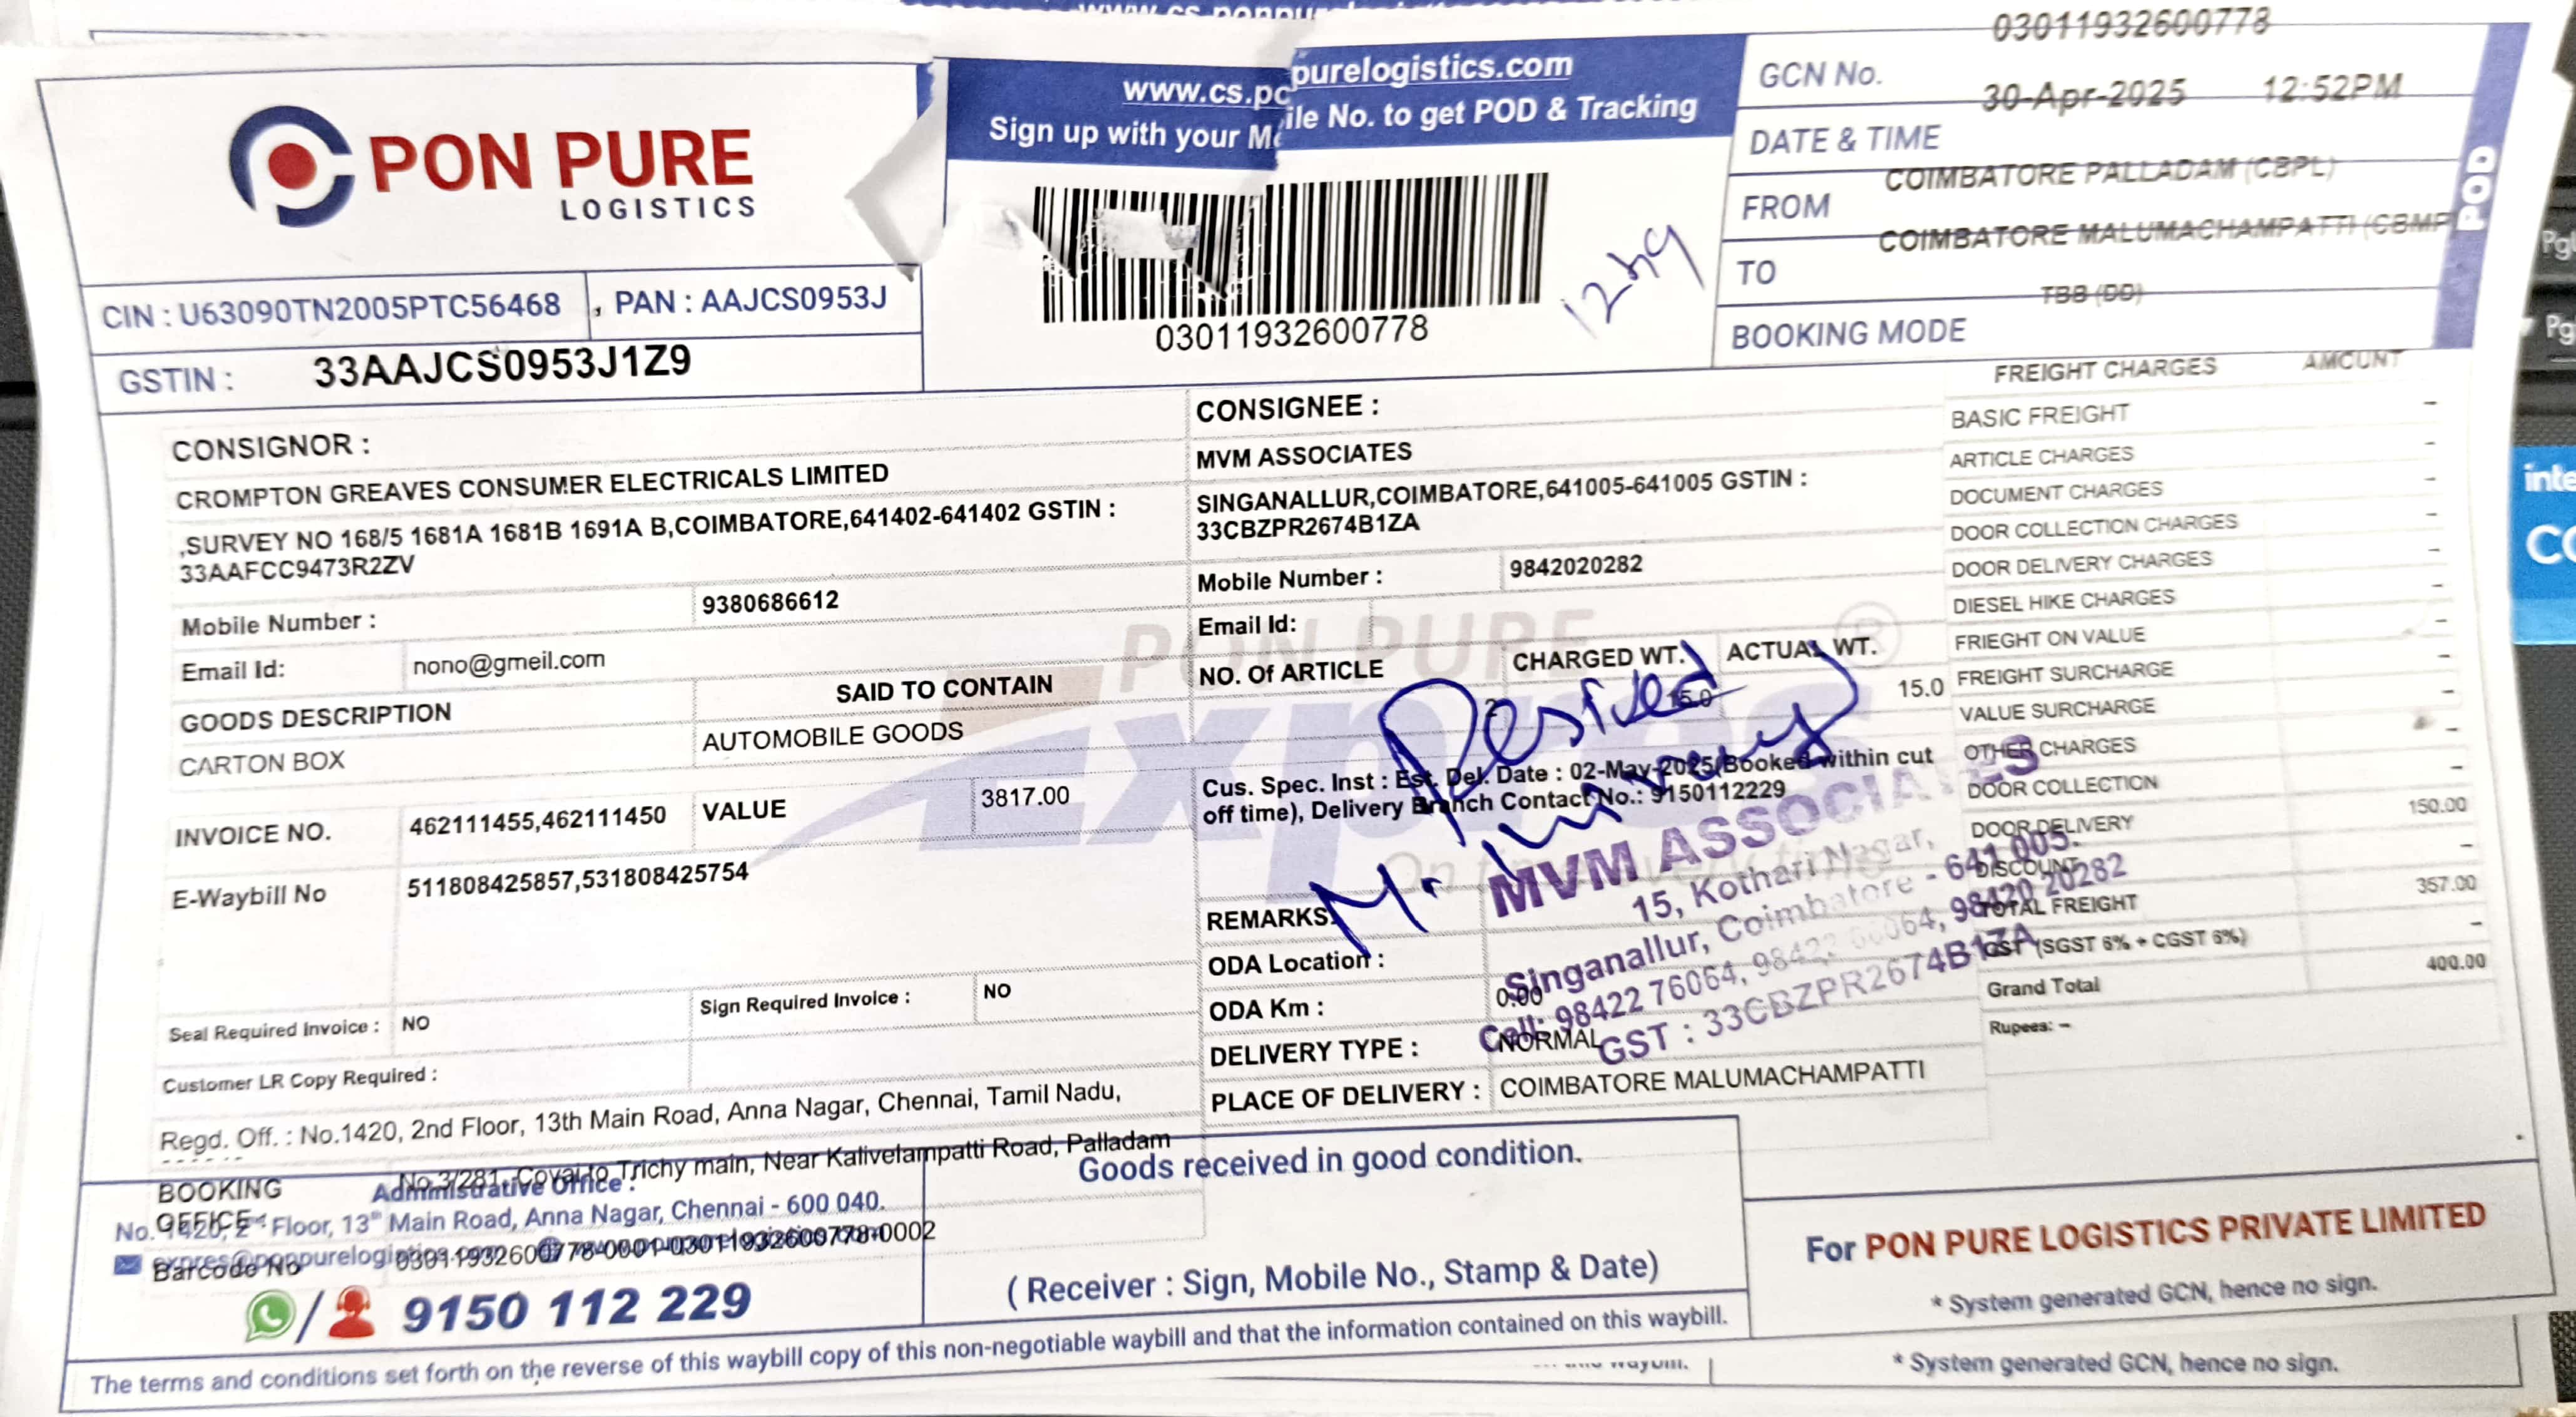 PON PURE
LOGISTICS
CIN : U63090TN2005PTC56468 , PAN : AAJCS0953J
GSTIN : 33AAJCS0953J1Z9
www.cs.po purelogistics.com
Sign up with your Mo ile No. to get POD & Tracking
03011932600778
GCN No. 03011932600778
DATE & TIME 30-Apr-2025 12:52PM
FROM COIMBATORE PALLADAM (CBPL)
TO COIMBATORE MALUMACHAMPATTI (CBMP
BOOKING MODE TBB (DD)
POD
CONSIGNOR :
CROMPTON GREAVES CONSUMER ELECTRICALS LIMITED
,SURVEY NO 168/5 1681A 1681B 1691A B,COIMBATORE,641402-641402 GSTIN :
33AAFCC9473R2ZV
Mobile Number : 9380686612
Email Id: nono@gmeil.com
GOODS DESCRIPTION SAID TO CONTAIN
CARTON BOX AUTOMOBILE GOODS
INVOICE NO. 462111455,462111450 VALUE 3817.00
E-Waybill No 511808425857,531808425754
Seal Required Invoice : NO Sign Required Invoice : NO
Customer LR Copy Required :
Regd. Off. : No.1420, 2nd Floor, 13th Main Road, Anna Nagar, Chennai, Tamil Nadu,
BOOKING OFFICE : No.3/281, Covai to Trichy main, Near Kalivelampatti Road, Palladam
Barcode No 03011932600778-0001-03011932600778-0002
CONSIGNEE :
MVM ASSOCIATES
SINGANALLUR,COIMBATORE,641005-641005 GSTIN :
33CBZPR2674B1ZA
Mobile Number : 9842020282
Email Id:
NO. Of ARTICLE CHARGED WT. ACTUAL WT.
2 15.0 15.0
Cus. Spec. Inst : Est. Del. Date : 02-May-2025(Booked within cut
off time), Delivery Branch Contact No.: 9150112229
REMARKS:
ODA Location :
ODA Km : 0.00
DELIVERY TYPE : NORMAL
PLACE OF DELIVERY : COIMBATORE MALUMACHAMPATTI
PON PURE
Expres
MVM ASSOCIATES
15, Kothari Nagar,
Singanallur, Coimbatore - 641 005.
Cell: 98422 76064, 98422 66064, 98420 20282
GST : 33CBZPR2674B1ZA
FREIGHT CHARGES AMOUNT
BASIC FREIGHT -
ARTICLE CHARGES -
DOCUMENT CHARGES -
DOOR COLLECTION CHARGES -
DOOR DELIVERY CHARGES -
DIESEL HIKE CHARGES -
FRIEGHT ON VALUE -
FREIGHT SURCHARGE -
VALUE SURCHARGE -
OTHER CHARGES -
DOOR COLLECTION -
DOOR DELIVERY 150.00
DISCOUNT -
TOTAL FREIGHT 357.00
GST (SGST 6% + CGST 6%) -
Grand Total 400.00
Rupees: -
Administrative Office :
No. 1420, 2nd Floor, 13th Main Road, Anna Nagar, Chennai - 600 040.
9150 112 229
Goods received in good condition.
( Receiver : Sign, Mobile No., Stamp & Date)
For PON PURE LOGISTICS PRIVATE LIMITED
* System generated GCN, hence no sign.
The terms and conditions set forth on the reverse of this waybill copy of this non-negotiable waybill and that the information contained on this waybill.
* System generated GCN, hence no sign.